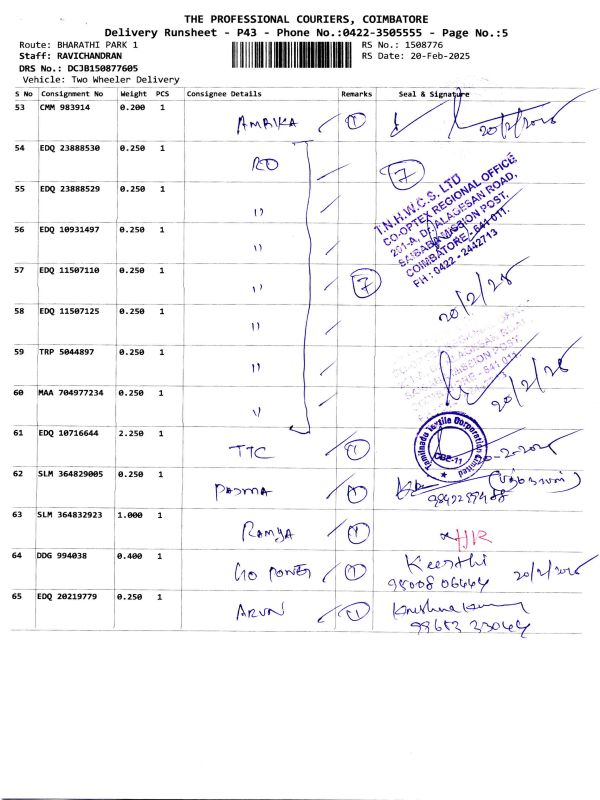 THE PROFESSIONAL COURIERS, COIMBATORE
Delivery Runsheet - P43 - Phone No.:0422-3505555 - Page No.:5
Route: BHARATHI PARK 1
RS No.: 1508776
Staff: RAVICHANDRAN
RS Date: 20-Feb-2025
DRS No.: DCJB150877605
Vehicle: Two Wheeler Delivery
S No Consignment No Weight PCS Consignee Details Remarks Seal & Signature
53 CMM 983914 0.200 1 AMBIKA 1
54 EDQ 23888530 0.250 1 RO 7
55 EDQ 23888529 0.250 1 ''
T.N.H.W.C.S. LTD
CO-OPTEX REGIONAL OFFICE
SAIBABA MISSION POST,
COIMBATORE - 641 011.
PH : 0422 - 2442713
56 EDQ 10931497 0.250 1 ''
57 EDQ 11507110 0.250 1 '' 7
20/2/25
58 EDQ 11507125 0.250 1 ''
59 TRP 5044897 0.250 1 ''
60 MAA 704977234 0.250 1 '' 20/2/25
61 EDQ 10716644 2.250 1 TTC 1
Tamilnadu Textile Corporation Limited
CBE-11
62 SLM 364829005 0.250 1 PADMA 1
63 SLM 364832923 1.000 1 RAMYA 1
64 DDG 994038 0.400 1 GO POWER 1 Keerthi
20/2/25
65 EDQ 20219779 0.250 1 ARUN 1